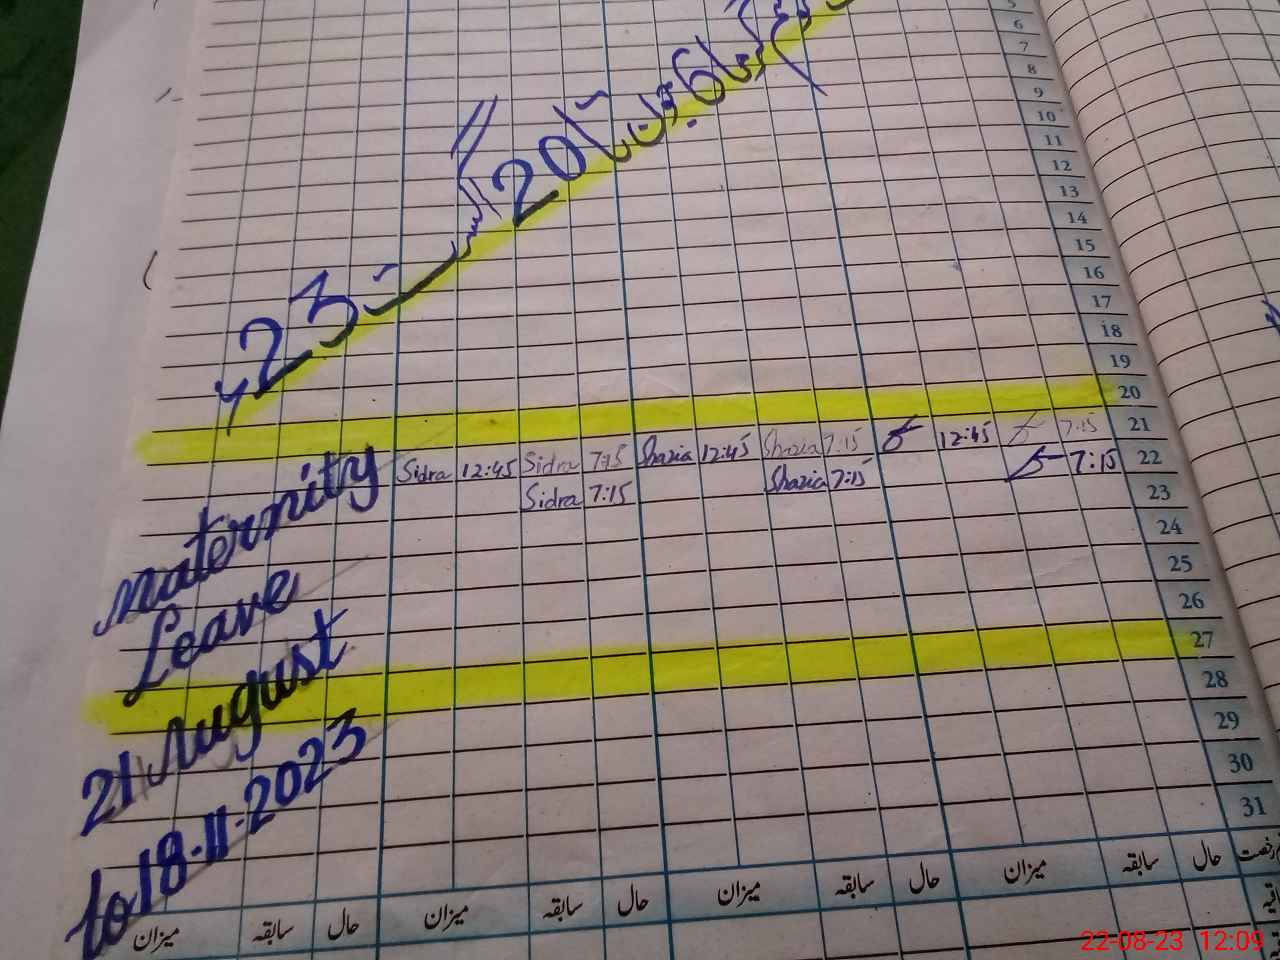 5
6
7
8
9
10
11
12
13
14
15
16
17
18
19
20
21
22
23
24
25
26
27
28
29
30
31
20
23
Sidra 12:45 Sidra 7:15 Shazia 12:45 Shazia 7:15 12:45 7:15
Sidra 7:15 Shazia 7:15 7:15
Maternity
Leave
21 August
to 18-11-2023
رخصت حال سابقہ میزان حال سابقہ میزان حال سابقہ میزان حال سابقہ میزان
22-08-23 12:09